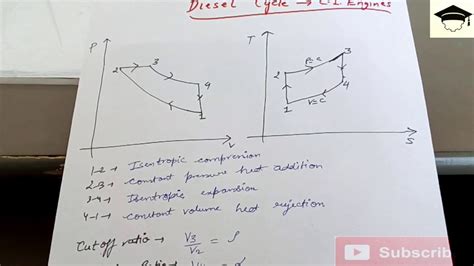 Diesel Cycle → C.I. Engines
P
2
3
4
1
V
T
P=C
3
2
4
1
V=C
S
1-2 → Isentropic compression
2-3 → constant pressure heat addition
3-4 → Isentropic expansion
4-1 → constant volume heat rejection
Cutoff ratio → V3/V2 = ρ
Subscrib